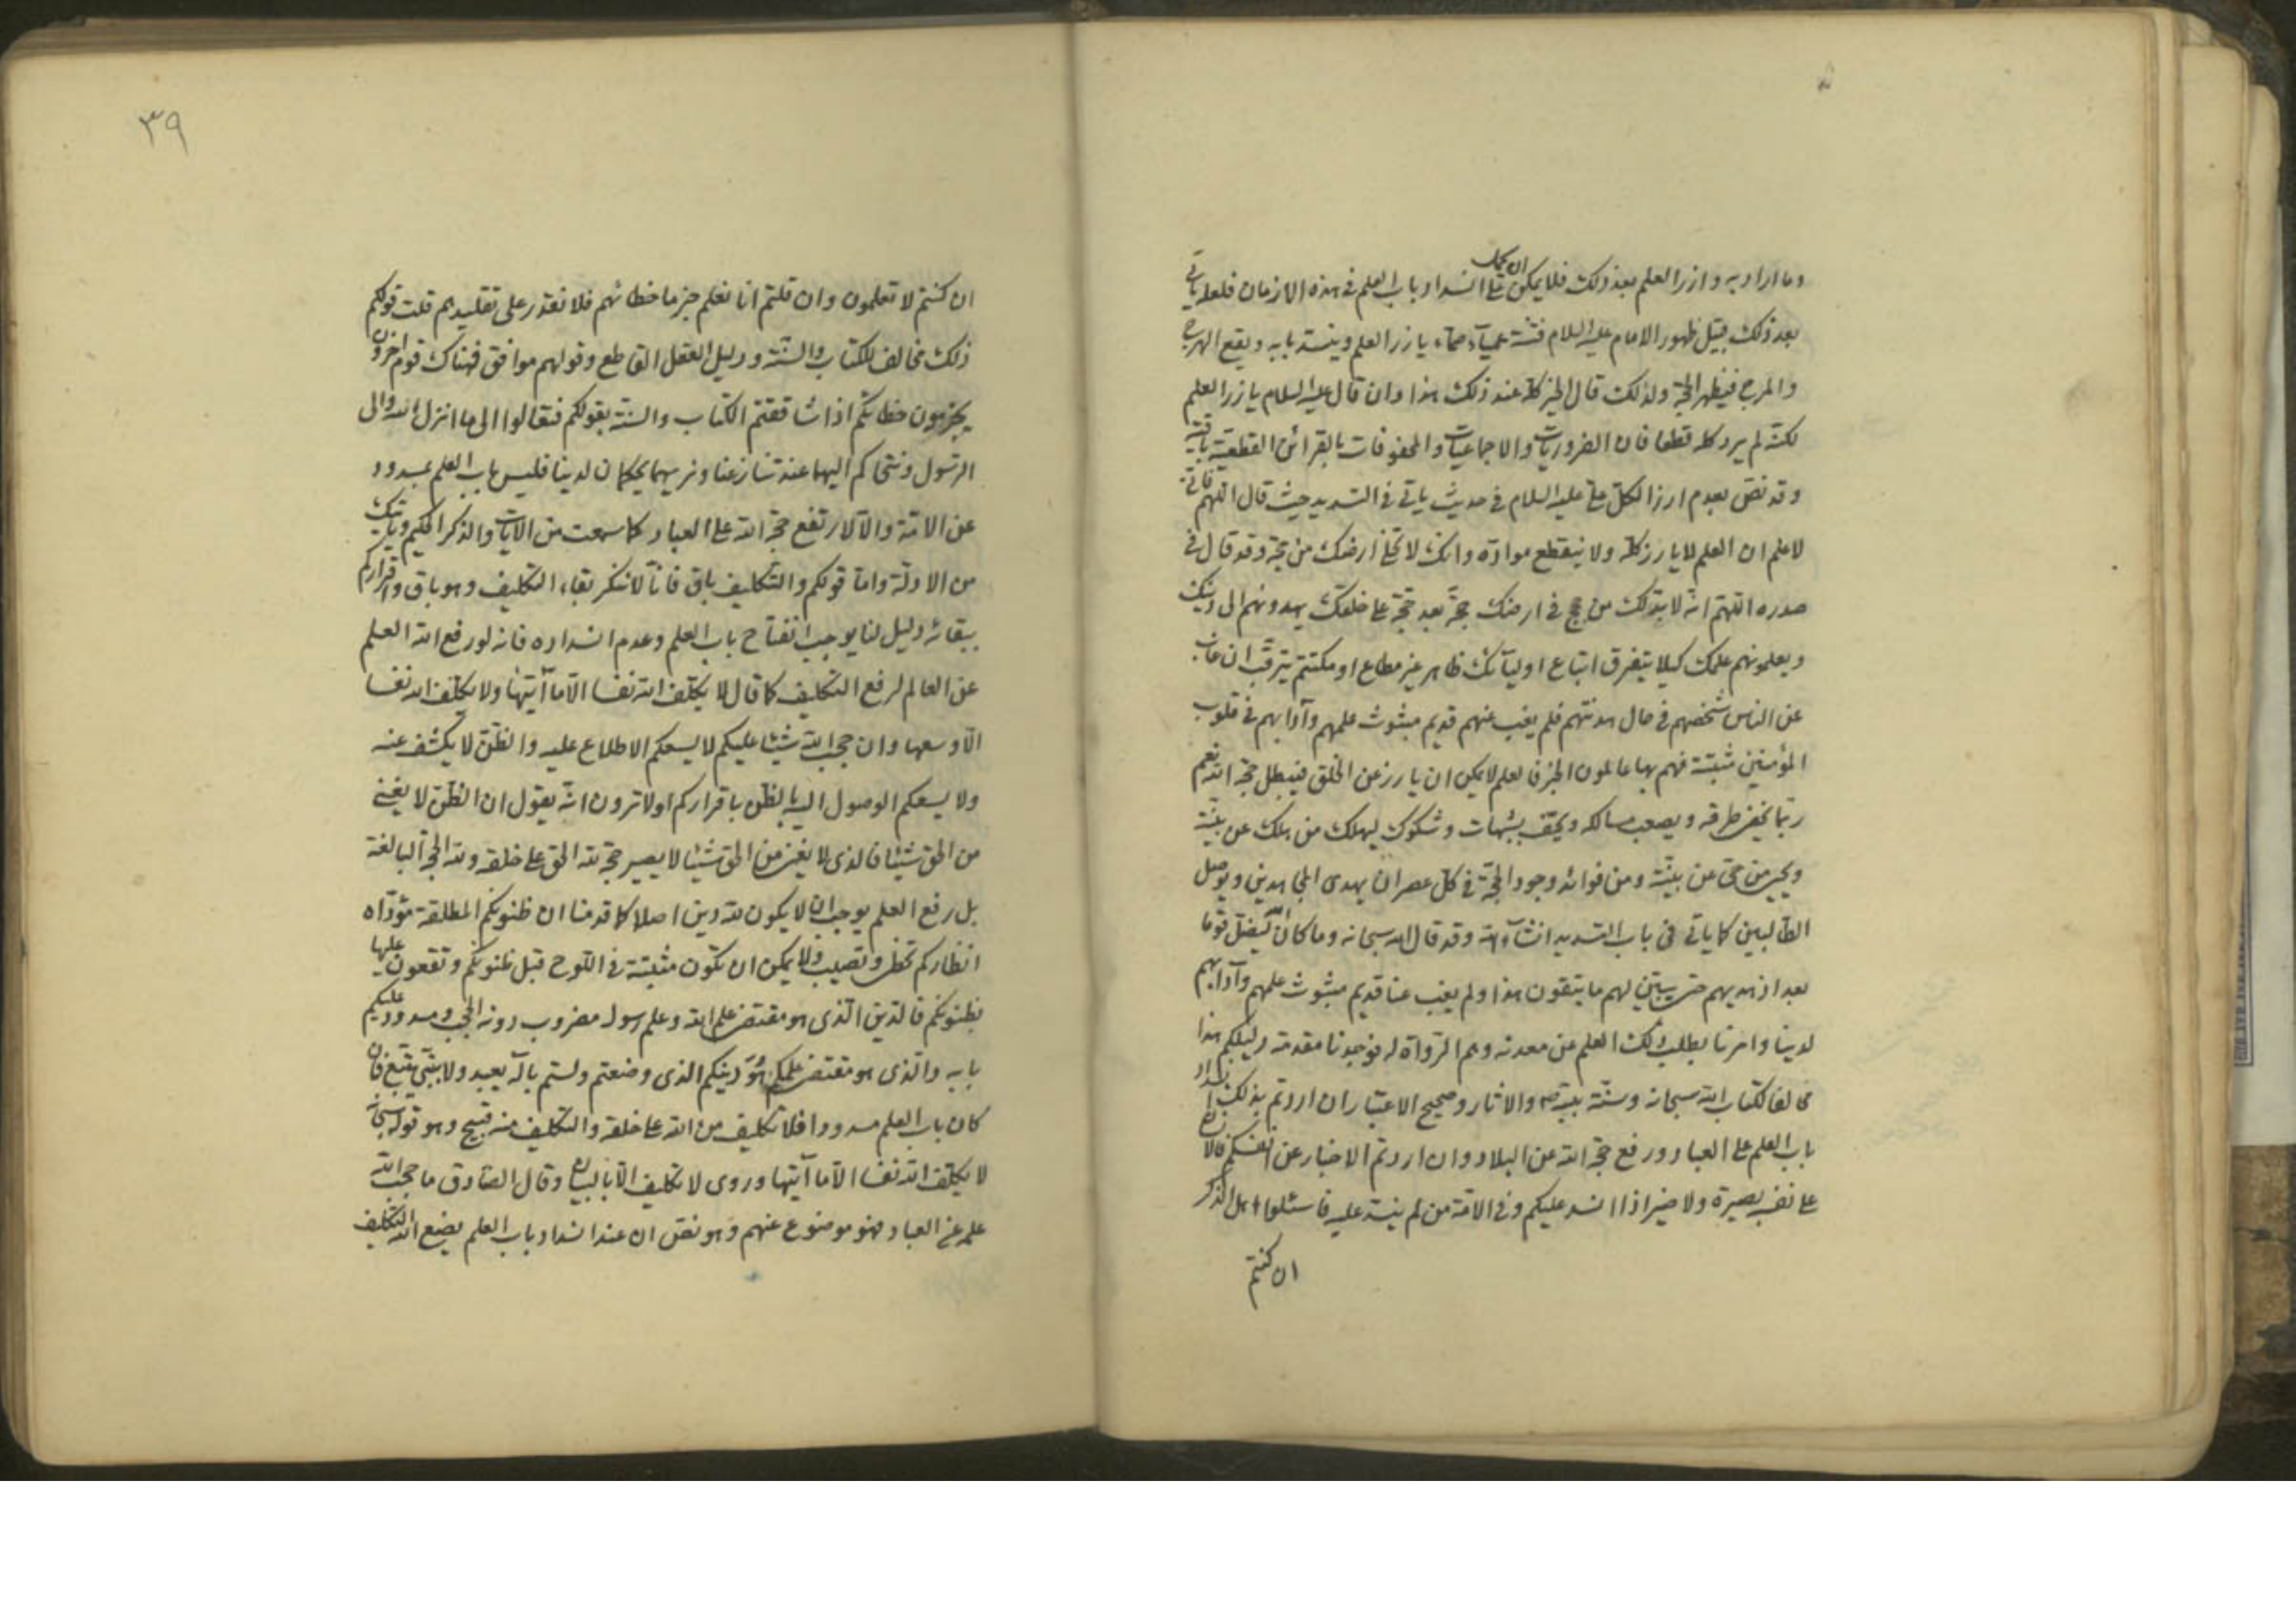 وما اراد به وازر العلم بعد ذلك فلا يمكن ان يحمل على انسداد باب العلم في هذه الازمان فلعله ياتي
بعد ذلك قبيل ظهور الامام عليه السلام فتنة عمياء صماء يازر العلم وينسد بابه ويقع الهرج
والمرج فيظهر الحجة ولذلك قال الخبر كله عند ذلك هذا وان قال عليه السلام يازر العلم
لكنه لم يرد كله قطعا فان الضروريات والاجماعيات والمحفوفات بالقرائن القطعية باقية
وقد نص بعدم ارز الكل علي عليه السلام في حديث ياتي في التسديد حيث قال اللهم فاني
لاعلم ان العلم لا يارز كله ولا ينقطع مواده وانك لا تخلي ارضك من حجة وقد قال في
صدره اللهم انه لا بد لك من حجج في ارضك حجة بعد حجة على خلقك يهدونهم الى دينك
ويعلمونهم علمك كيلا يتفرق اتباع اوليآئك ظاهر غير مطاع او مكتتم يترقب ان غاب
عن الناس شخصهم في حال هدنتهم فلم يغب عنهم قديم مبثوث علمهم وآدابهم في قلوب
المؤمنين مثبتة فهم بها عاملون الخبر فالعلم لا يمكن ان يارز عن الخلق فيبطل حجة الله نعم
ربما يخفى طرقه ويصعب مسالكه ويحتف بشبهات وشكوك ليهلك من هلك عن بينة
ويحيى من حي عن بينة ومن فوائد وجود الحجة في كل عصر ان يهدي المجاهدين ويوصل
الطالبين كما ياتي في باب التسديد انشآء الله وقد قال الله سبحانه وما كان الله ليضل قوما
بعد اذ هديهم حتى يبين لهم ما يتقون هذا ولم يغب عنا قديم مبثوث علمهم وآدابهم
لدينا وامرنا بطلب ذلك العلم من معدنه وهم الرواة له فوجدنا مقدمة دليلكم هذا
مخالفا لكتاب الله سبحانه وسنة نبيه ص والاثار وصحيح الاعتبار ان اردتم بذلك انسداد
باب العلم على العباد ورفع حجة الله عن البلاد وان اردتم الاخبار عن انفسكم فالانسان
على نفسه بصيرة ولا ضير اذا انسد عليكم وفي الامة من لم ينسد عليه فاسئلوا اهل الذكر
ان كنتم
٣٩
ان كنتم لا تعلمون وان قلتم انا نعلم جزما خطائهم فلا نقدر على تقليدهم قلت قولكم
ذلك مخالف للكتاب والسنة ودليل العقل القاطع وقولهم موافق فهناك قوم اخرون
يجزمون خطائكم اذا شاققتم الكتاب والسنة بقولكم فتعالوا الى ما انزل الله والى
الرسول ونتحاكم اليهما عند تنازعنا ونريهما يحكمان لدينا فليس باب العلم بمسدود
عن الامة والا لارتفع حجة الله على العباد كما سمعت من الايات والذكر الحكيم وياتيك
من الادلة واما قولكم والتكليف باق فانا لا ننكر بقاء التكليف وهو باق واقراركم
ببقائه دليل لنا يوجب انفتاح باب العلم وعدم انسداده فانه لو رفع الله العلم
عن العالم لرفع التكليف كما قال لا يكلف الله نفسا الا ما آتيها ولا يكلف الله نفسا
الا وسعها وان حجب الله شيئا عليكم لا يسعكم الاطلاع عليه والظن لا يكشف عنه
ولا يسعكم الوصول اليه بالظن باقراركم اولا ترون انه يقول ان الظن لا يغني
من الحق شيئا فالذي لا يغني من الحق شيئا لا يصير حجة لله الحق على خلقه ولله الحجة البالغة
بل رفع العلم يوجب ان لا يكون لله دين اصلا كما قدمنا ان ظنونكم المطلقة مؤداه
انظاركم تخطئ وتصيب ولا يمكن ان تكون مثبتة في اللوح قبل ظنونكم وتقعون عليها
بظنونكم فالدين الذي هو مقتضى علم الله وعلم رسوله مضروب دونه الحجب ومسدود عليكم
بابه والذي هو مقتضى علمكم هو دينكم الذي وضعتم ولستم بآله يعبد ولا بنبي يتبع فان
كان باب العلم مسدودا فلا تكليف من الله على خلقه والتكليف منه قبيح وهو قوله سبحانه
لا يكلف الله نفسا الا ما آتيها وروى لا تكليف الا بالبيان وقال الصادق ما حجب الله
علمه عن العباد فهو موضوع عنهم وهو نص ان عند انسداد باب العلم يضع الله التكليف